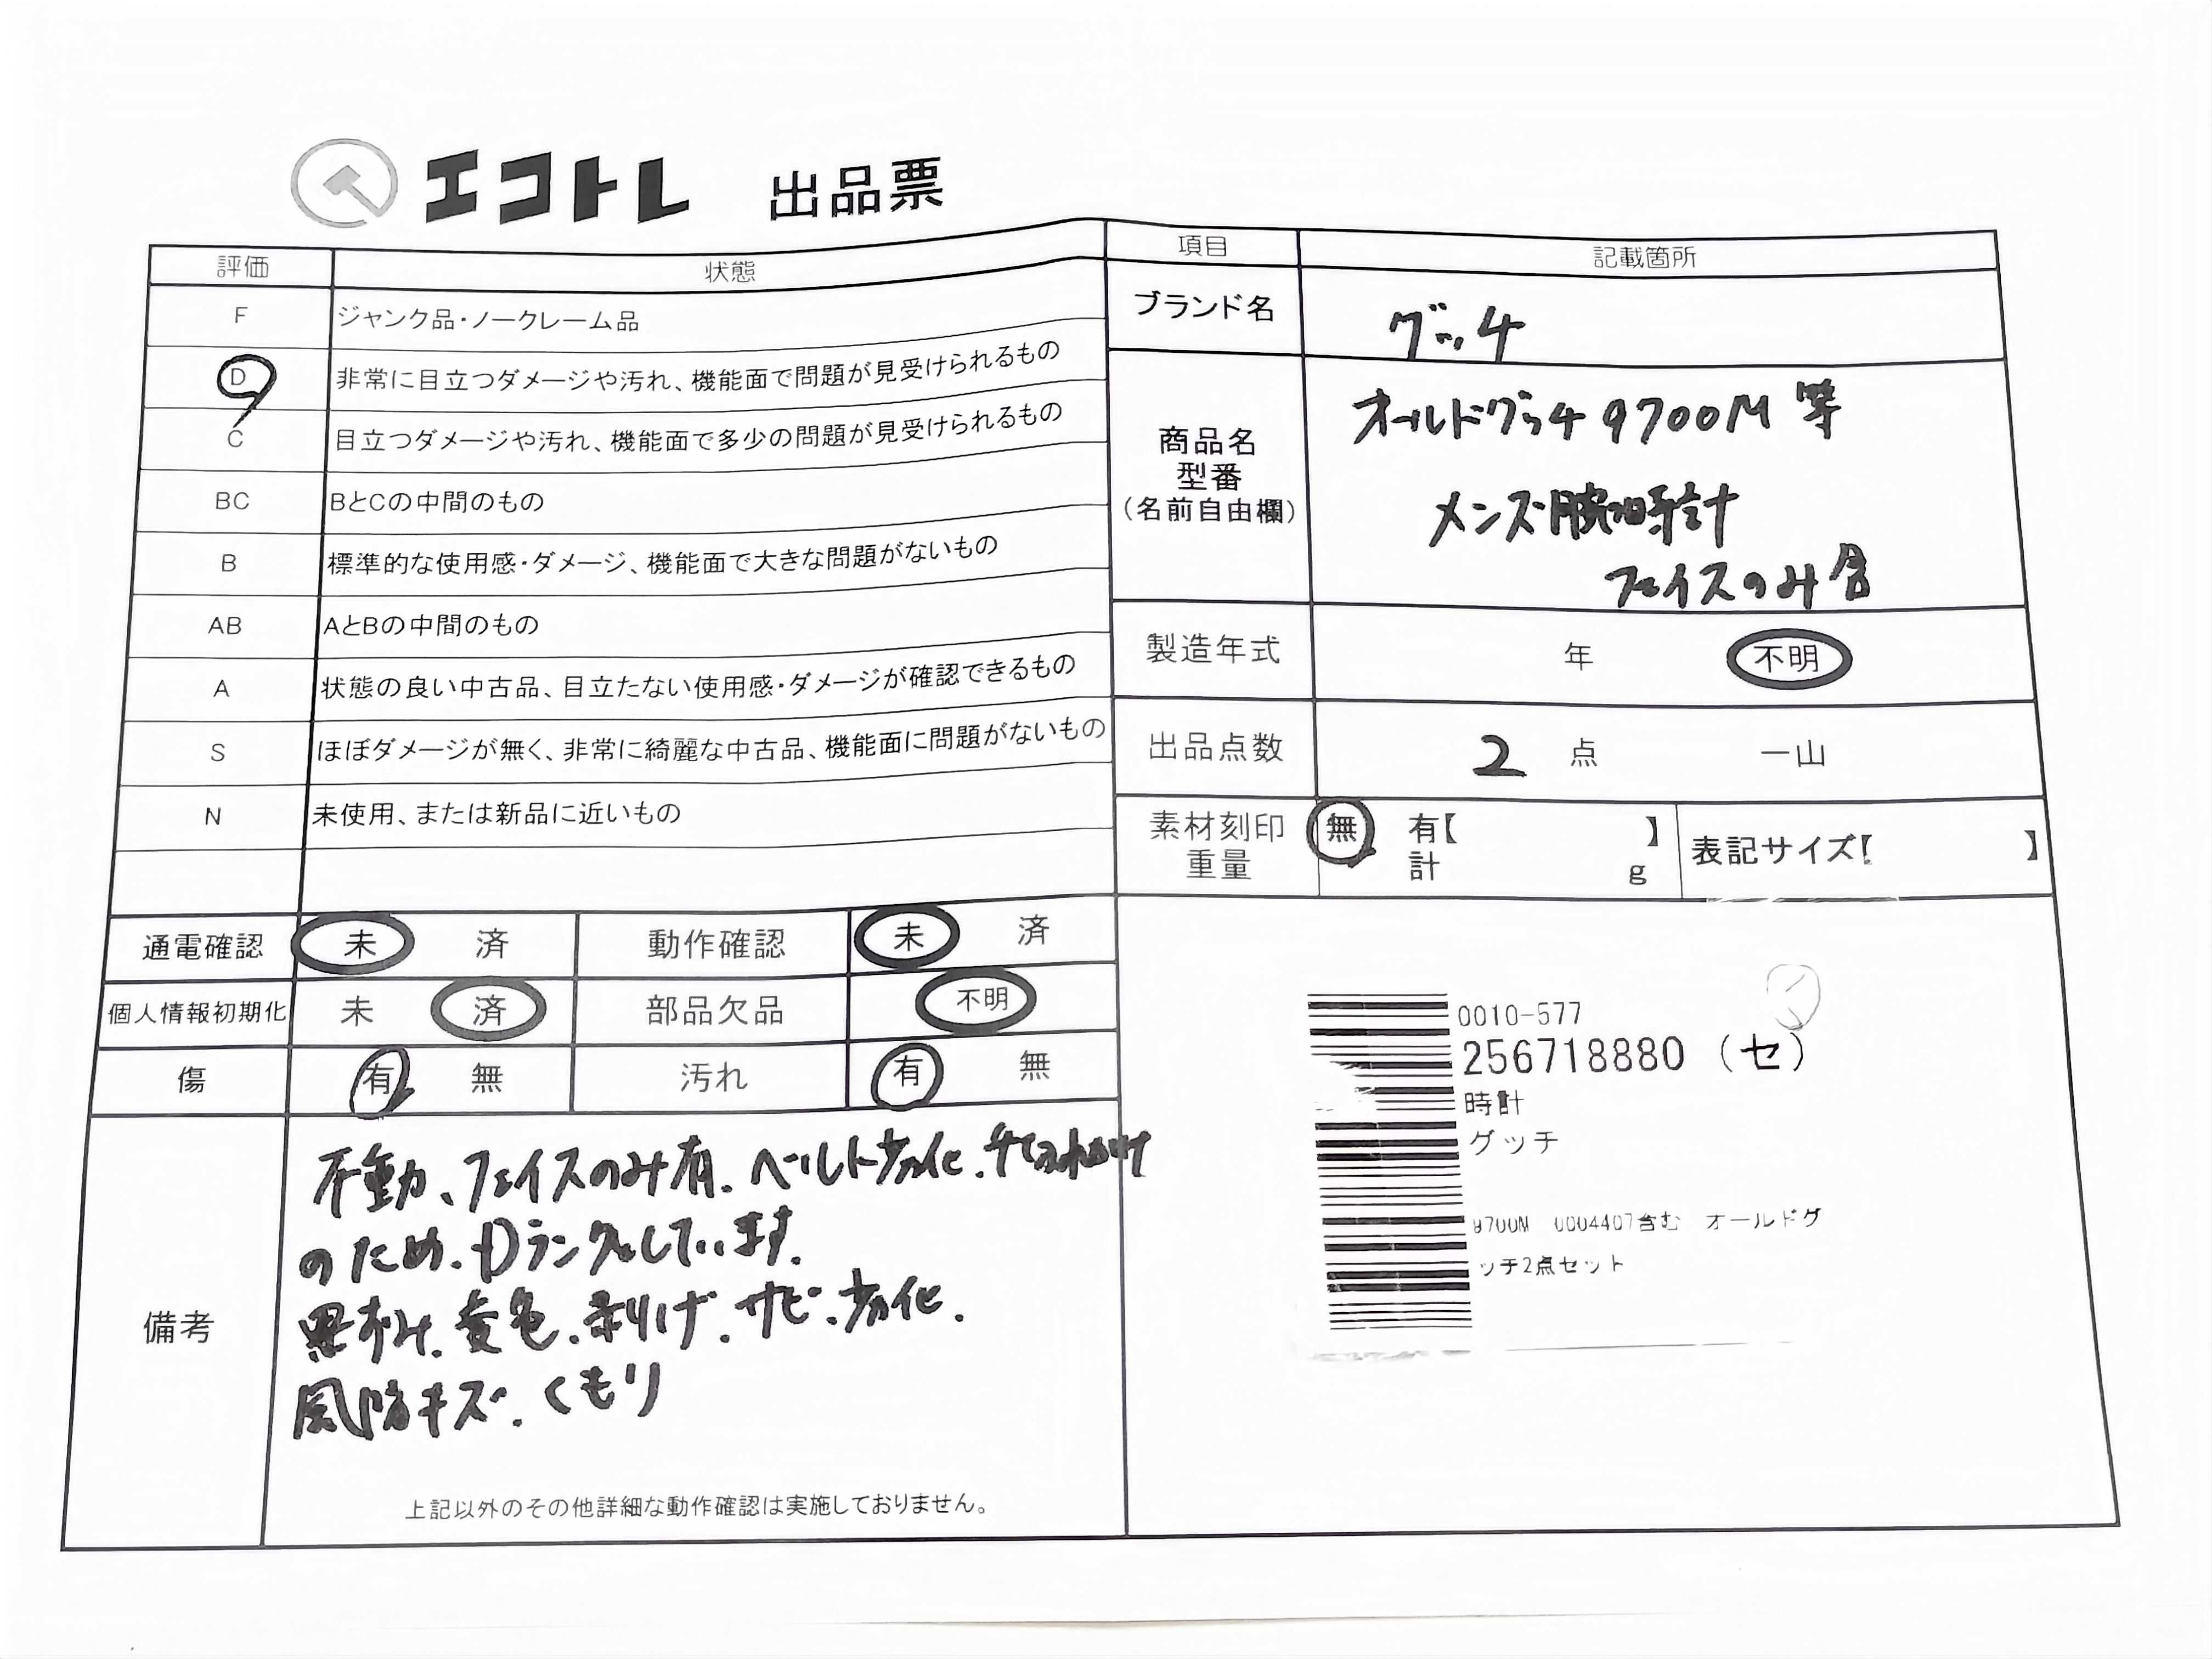 エコトレ 出品票
評価 状態
F ジャンク品・ノークレーム品
D 非常に目立つダメージや汚れ、機能面で問題が見受けられるもの
C 目立つダメージや汚れ、機能面で多少の問題が見受けられるもの
BC BとCの中間のもの
B 標準的な使用感・ダメージ、機能面で大きな問題がないもの
AB AとBの中間のもの
A 状態の良い中古品、目立たない使用感・ダメージが確認できるもの
S ほぼダメージが無く、非常に綺麗な中古品、機能面に問題がないもの
N 未使用、または新品に近いもの
通電確認 未 済 動作確認 未 済
個人情報初期化 未 済 部品欠品 不明
傷 有 無 汚れ 有 無
備考
不動、フェイスのみ有、ベルト劣化、
のため、Dランクとしています。
黒ずみ、変色、剥げ、サビ、劣化、
風防キズ、くもり
上記以外のその他詳細な動作確認は実施しておりません。
項目 記載箇所
ブランド名 グッチ
商品名
型番
(名前自由欄)
オールドグッチ 9700M 等
メンズ腕時計
フェイスのみ含
製造年式 年 不明
出品点数 2 点 一山
素材刻印 無 有【 】
重量 計 g
表記サイズ【 】
0010-577
256718880 (セ)
時計
グッチ
9700M 0004407含む オールドグ
ッチ2点セット